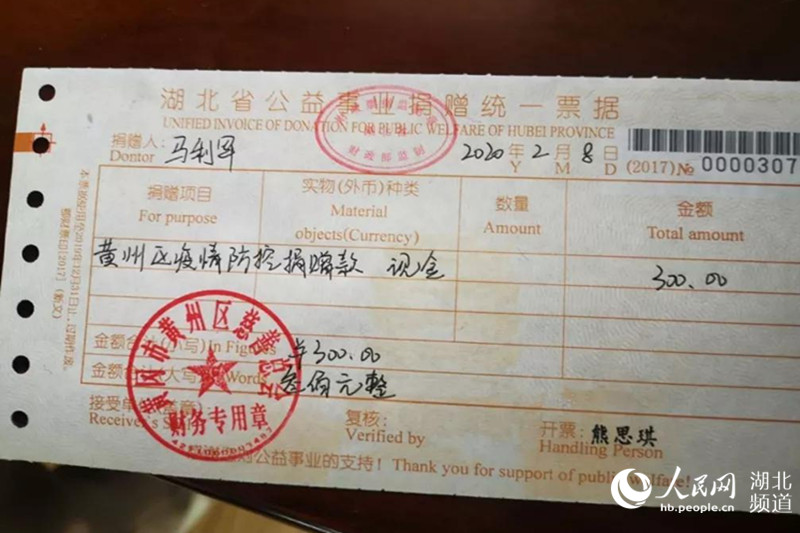 湖北省公益事业捐赠统一票据
UNIFIED INVOICE OF DONATION FOR PUBLIC WELFARE OF HUBEI PROVINCE
财政部监制
捐赠人: 马利军 2020 年 2 月 8 日
Dontor Y M D (2017) № 0000307
捐赠项目 实物(外币)种类 数量 金额
For purpose Material Amount Total amount
objects(Currency)
黄州区疫情防控捐赠款 现金 300.00
金额合计(小写)In Figures ¥300.00
金额合计(大写) Words 叁佰元整
黄冈市黄州区慈善总会
财务专用章
接受单位(盖章) 复核: 开票: 熊思琪
Receiver's Verified by Handling Person
公益事业的支持! Thank you for support of public welfare!
人民网 湖北频道
hb.people.cn